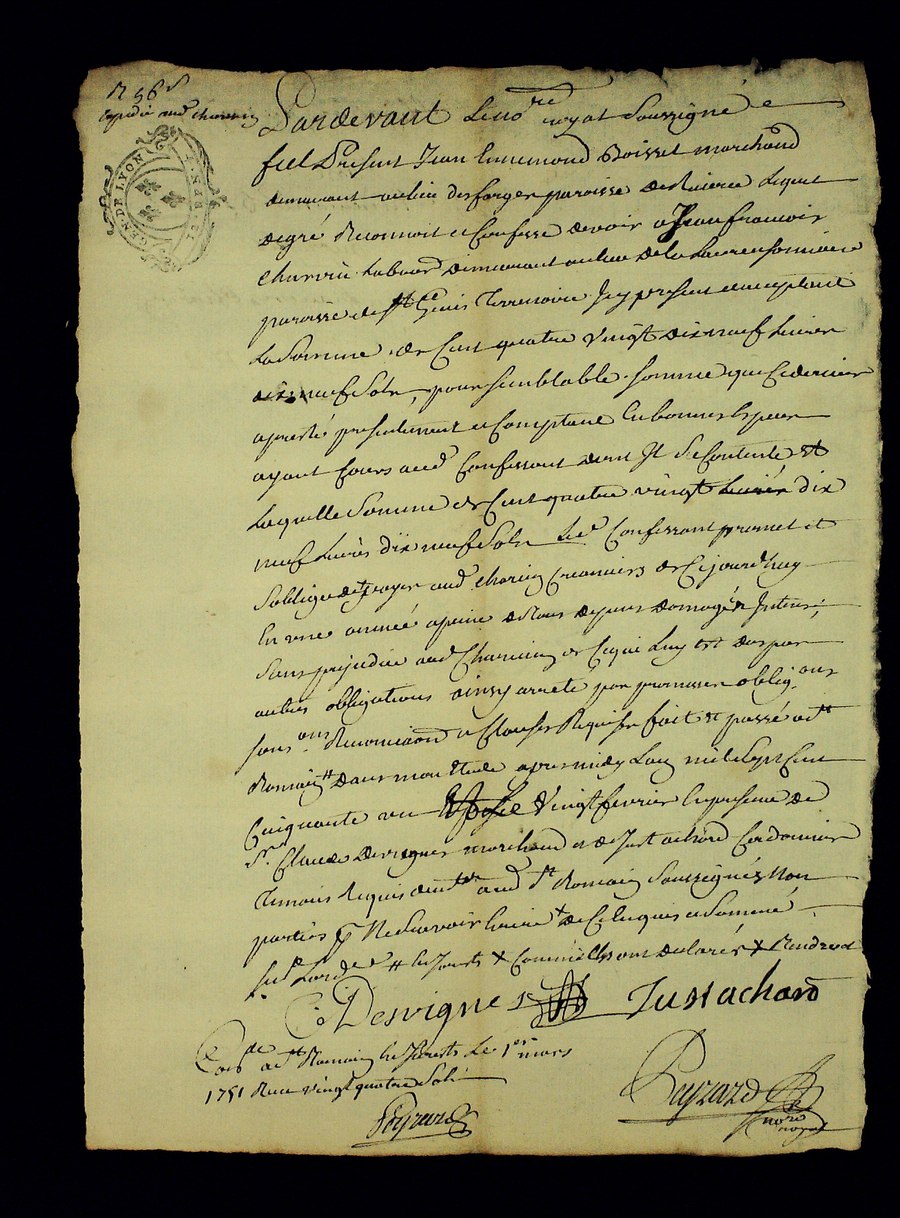 n 56 s
expedié aud charvin
GEN. DE LYON
Pardevant Le nore royal Soussigné e
fut Present Jean Ennemond Boisset marchand
demeurant au lieu des forges paroisse de Lequel
de gré Reconnoit et Confesse devoir a Jean francois
Charvin Laboureur demeurant au lieu de la
paroisse de st Genis Terrenoire Icy present et acceptant
La Somme de Cent quatre Vingt dix neuf Livres
dix neuf Sols, pour semblable somme que Ce dernier
a presté presentement et Comptant En bonnes Especes
ayant Cours aud Confessant dont Il Se Contente et
Laquelle Somme de Cent quatre vingt Livres dix
neuf Livres dix neuf Sols Led Confessant promet et
Soblige de payer aud charvin creancier de Cejourdhuy
En une année a peine de tous depens domages Interets,
Sans prejudice aud Charvin de Ce qui Luy est du par
autres obligations ainsy arreté par promesses obligons
Soumons Renonciaons et Clauses Requises fait et passé a st
Romain dans mon Etude apres midy Lan mil Sept Cent
Cinquante un Et le Vingt fevrier En presence de
Sr Claude Desvignes marchand et de Just achard Cordonnier
Temoins Requis demts aud st Romain Soussignés Non
parties p Ne Scavoir Ecrire de Ce Enquis et Sommé
Suivt Lordce # En forests x Comme Elles ont declaré x
C Desvignes Just achard
Conlé a st Romain En forests Le 1er mars
1751 Recu vingt quatre Sols
Peyrard
Peyrard
nore
royal